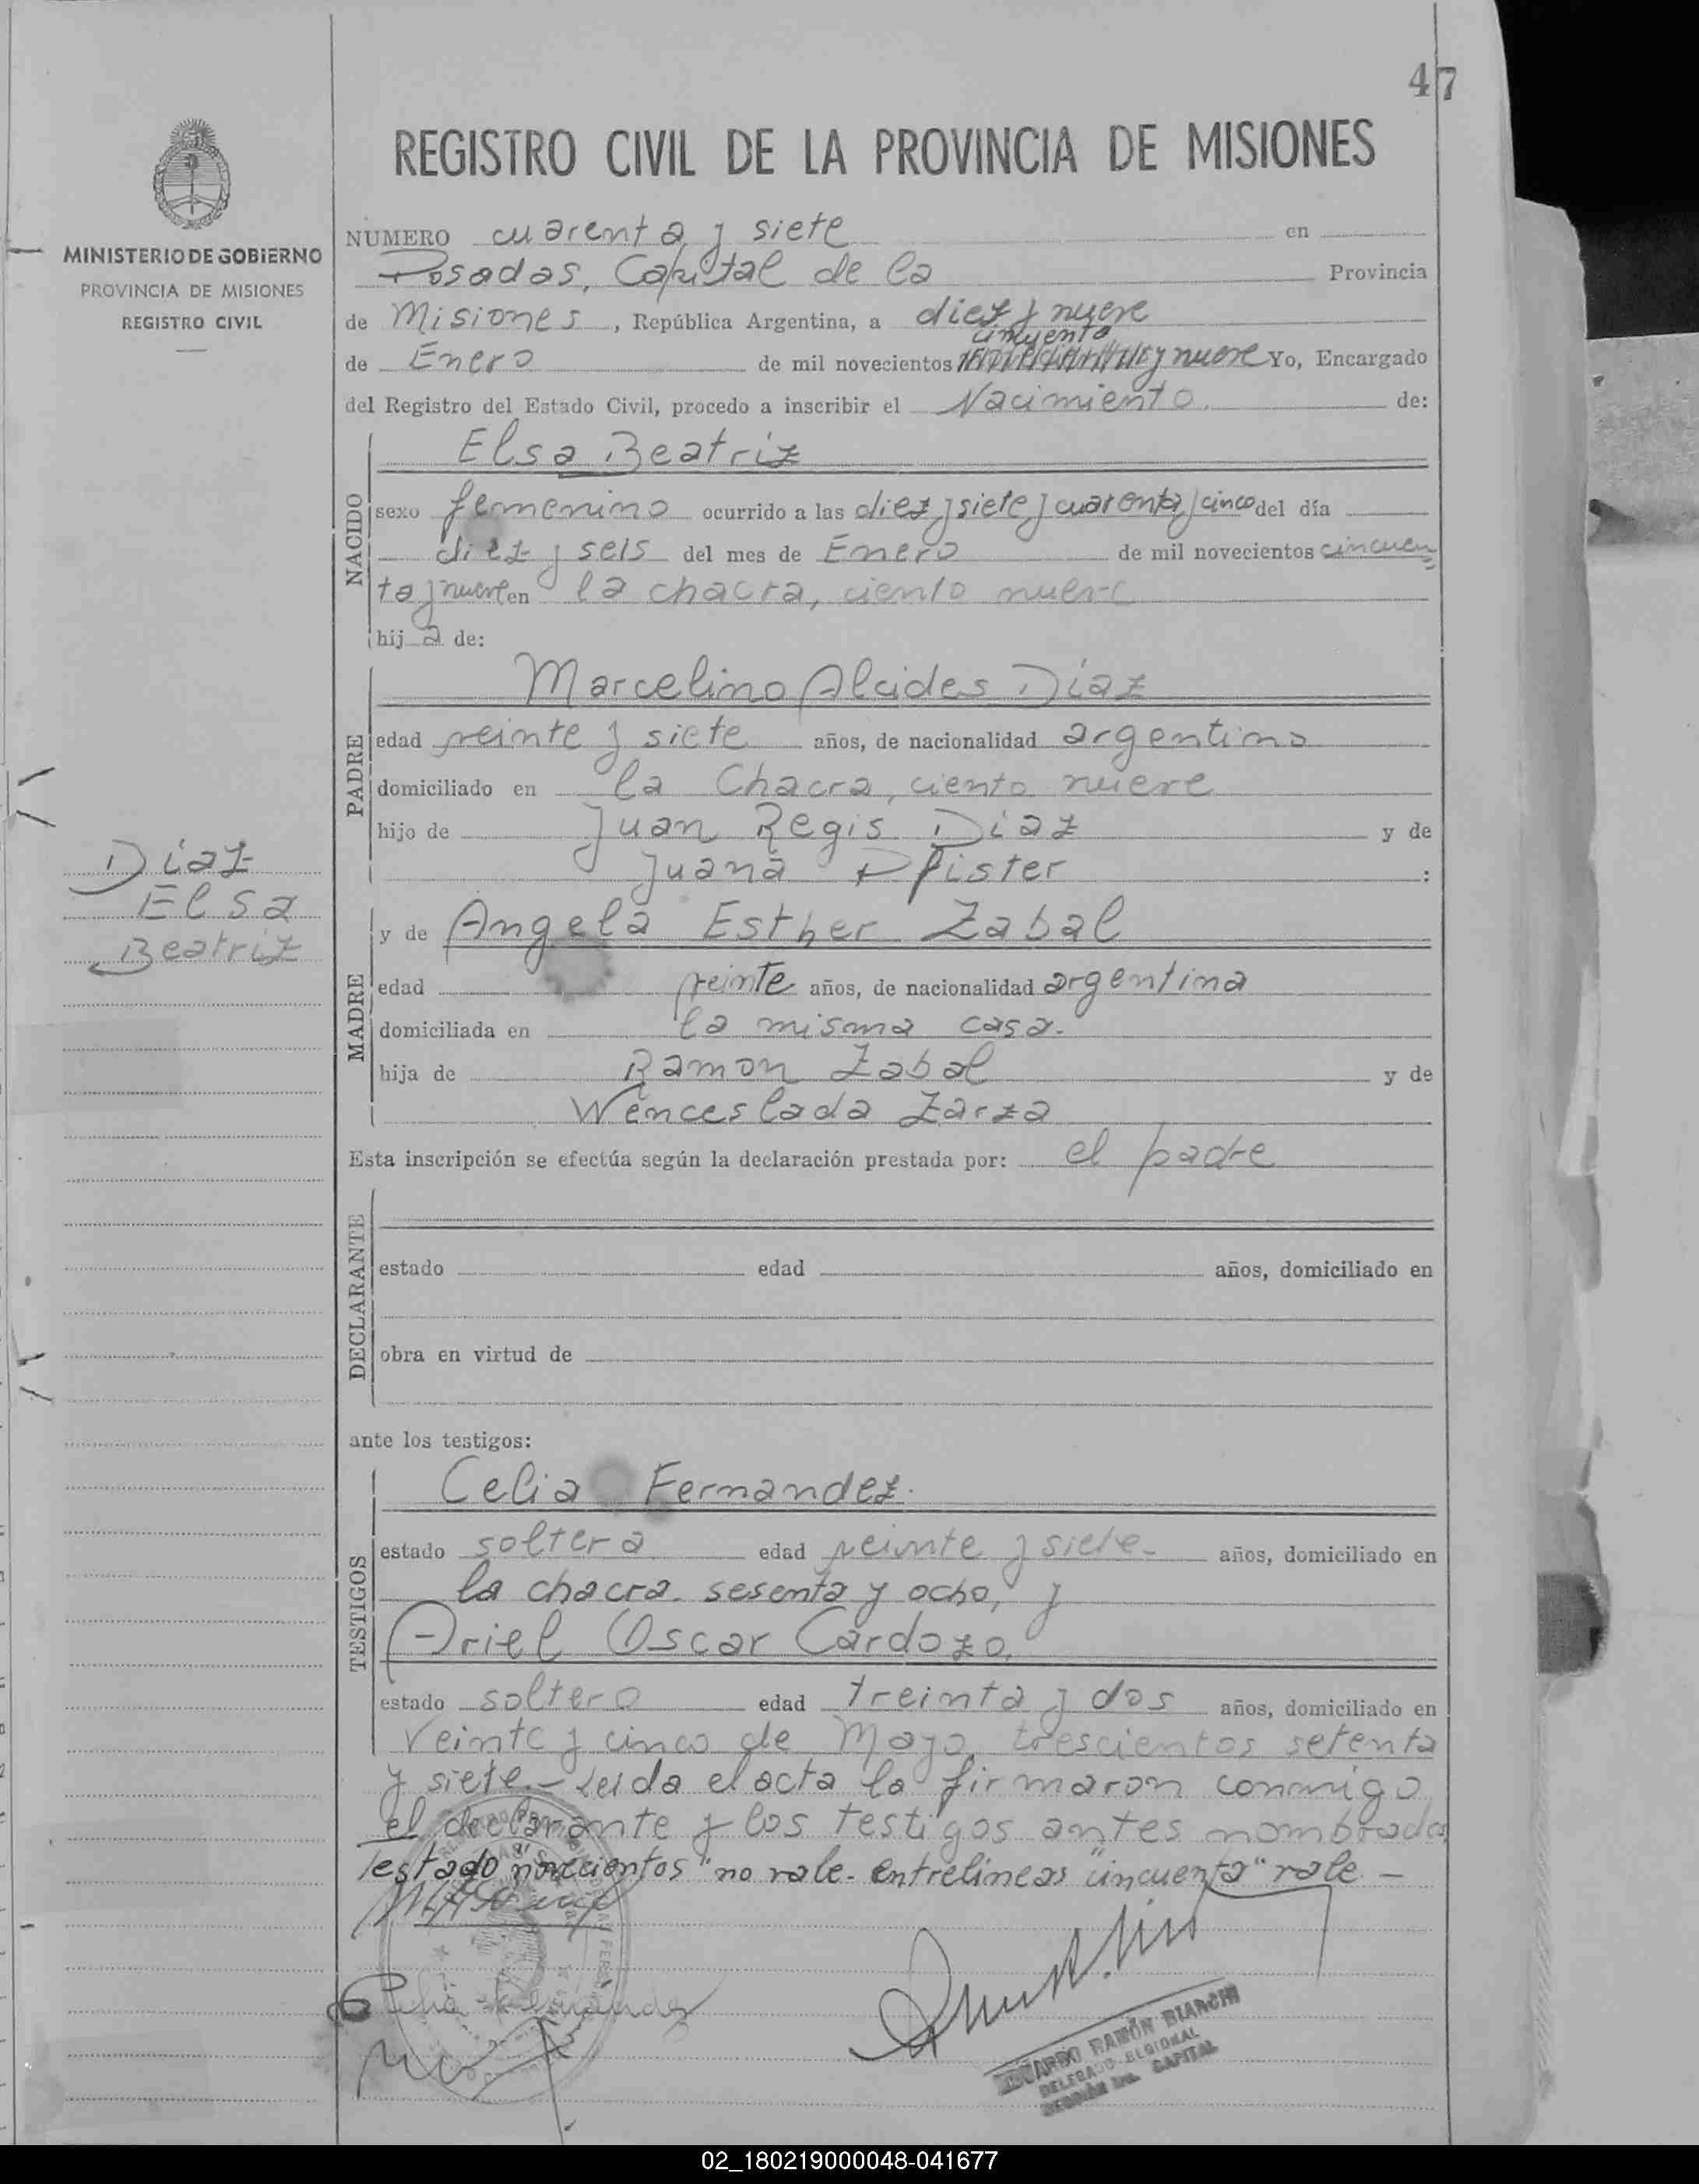 47
REGISTRO CIVIL DE LA PROVINCIA DE MISIONES
MINISTERIO DE GOBIERNO
PROVINCIA DE MISIONES
REGISTRO CIVIL
NUMERO cuarenta y siete en
Posadas, Capital de la Provincia
de Misiones, República Argentina, a diez y nueve
cincuenta
de Enero de mil novecientos y nueve Yo, Encargado
del Registro del Estado Civil, procedo a inscribir el Nacimiento. de:
NACIDO
Elsa Beatriz
sexo femenino ocurrido a las diez y siete y cuarenta y cinco del día
diez y seis del mes de Enero de mil novecientos cincuen
ta y nueve en la chacra, ciento nueve
hija de:
PADRE
Marcelino Alcides Díaz
edad veinte y siete años, de nacionalidad argentino
domiciliado en la Chacra, ciento nueve
hijo de Juan Regis Diaz y de
Juana Pfister :
Diaz
Elsa
Beatriz
MADRE
y de Angela Esther Zabal
edad veinte años, de nacionalidad argentina
domiciliada en la misma casa.
hija de Ramon Zabal y de
Wenceslada Zarza
Esta inscripción se efectúa según la declaración prestada por: el padre
DECLARANTE
estado edad años, domiciliado en
obra en virtud de
ante los testigos:
TESTIGOS
Celia Fernandez.
estado soltera edad veinte y siete- años, domiciliado en
la chacra. sesenta y ocho, y
Ariel Oscar Cardozo,
estado soltero edad treinta y dos años, domiciliado en
veinte y cinco de Mayo trescientos setenta
y siete.- Leida el acta la firmaron conmigo
el declarante y los testigos antes nombrados
Testado "novecientos" no vale. Entrelineas "cincuenta" vale. -
Celia Fernandez
EDUARDO RAMÓN BIANCHI
DELEGADO REGIONAL
SECCIÓN 1ra. CAPITAL
02_180219000048-041677